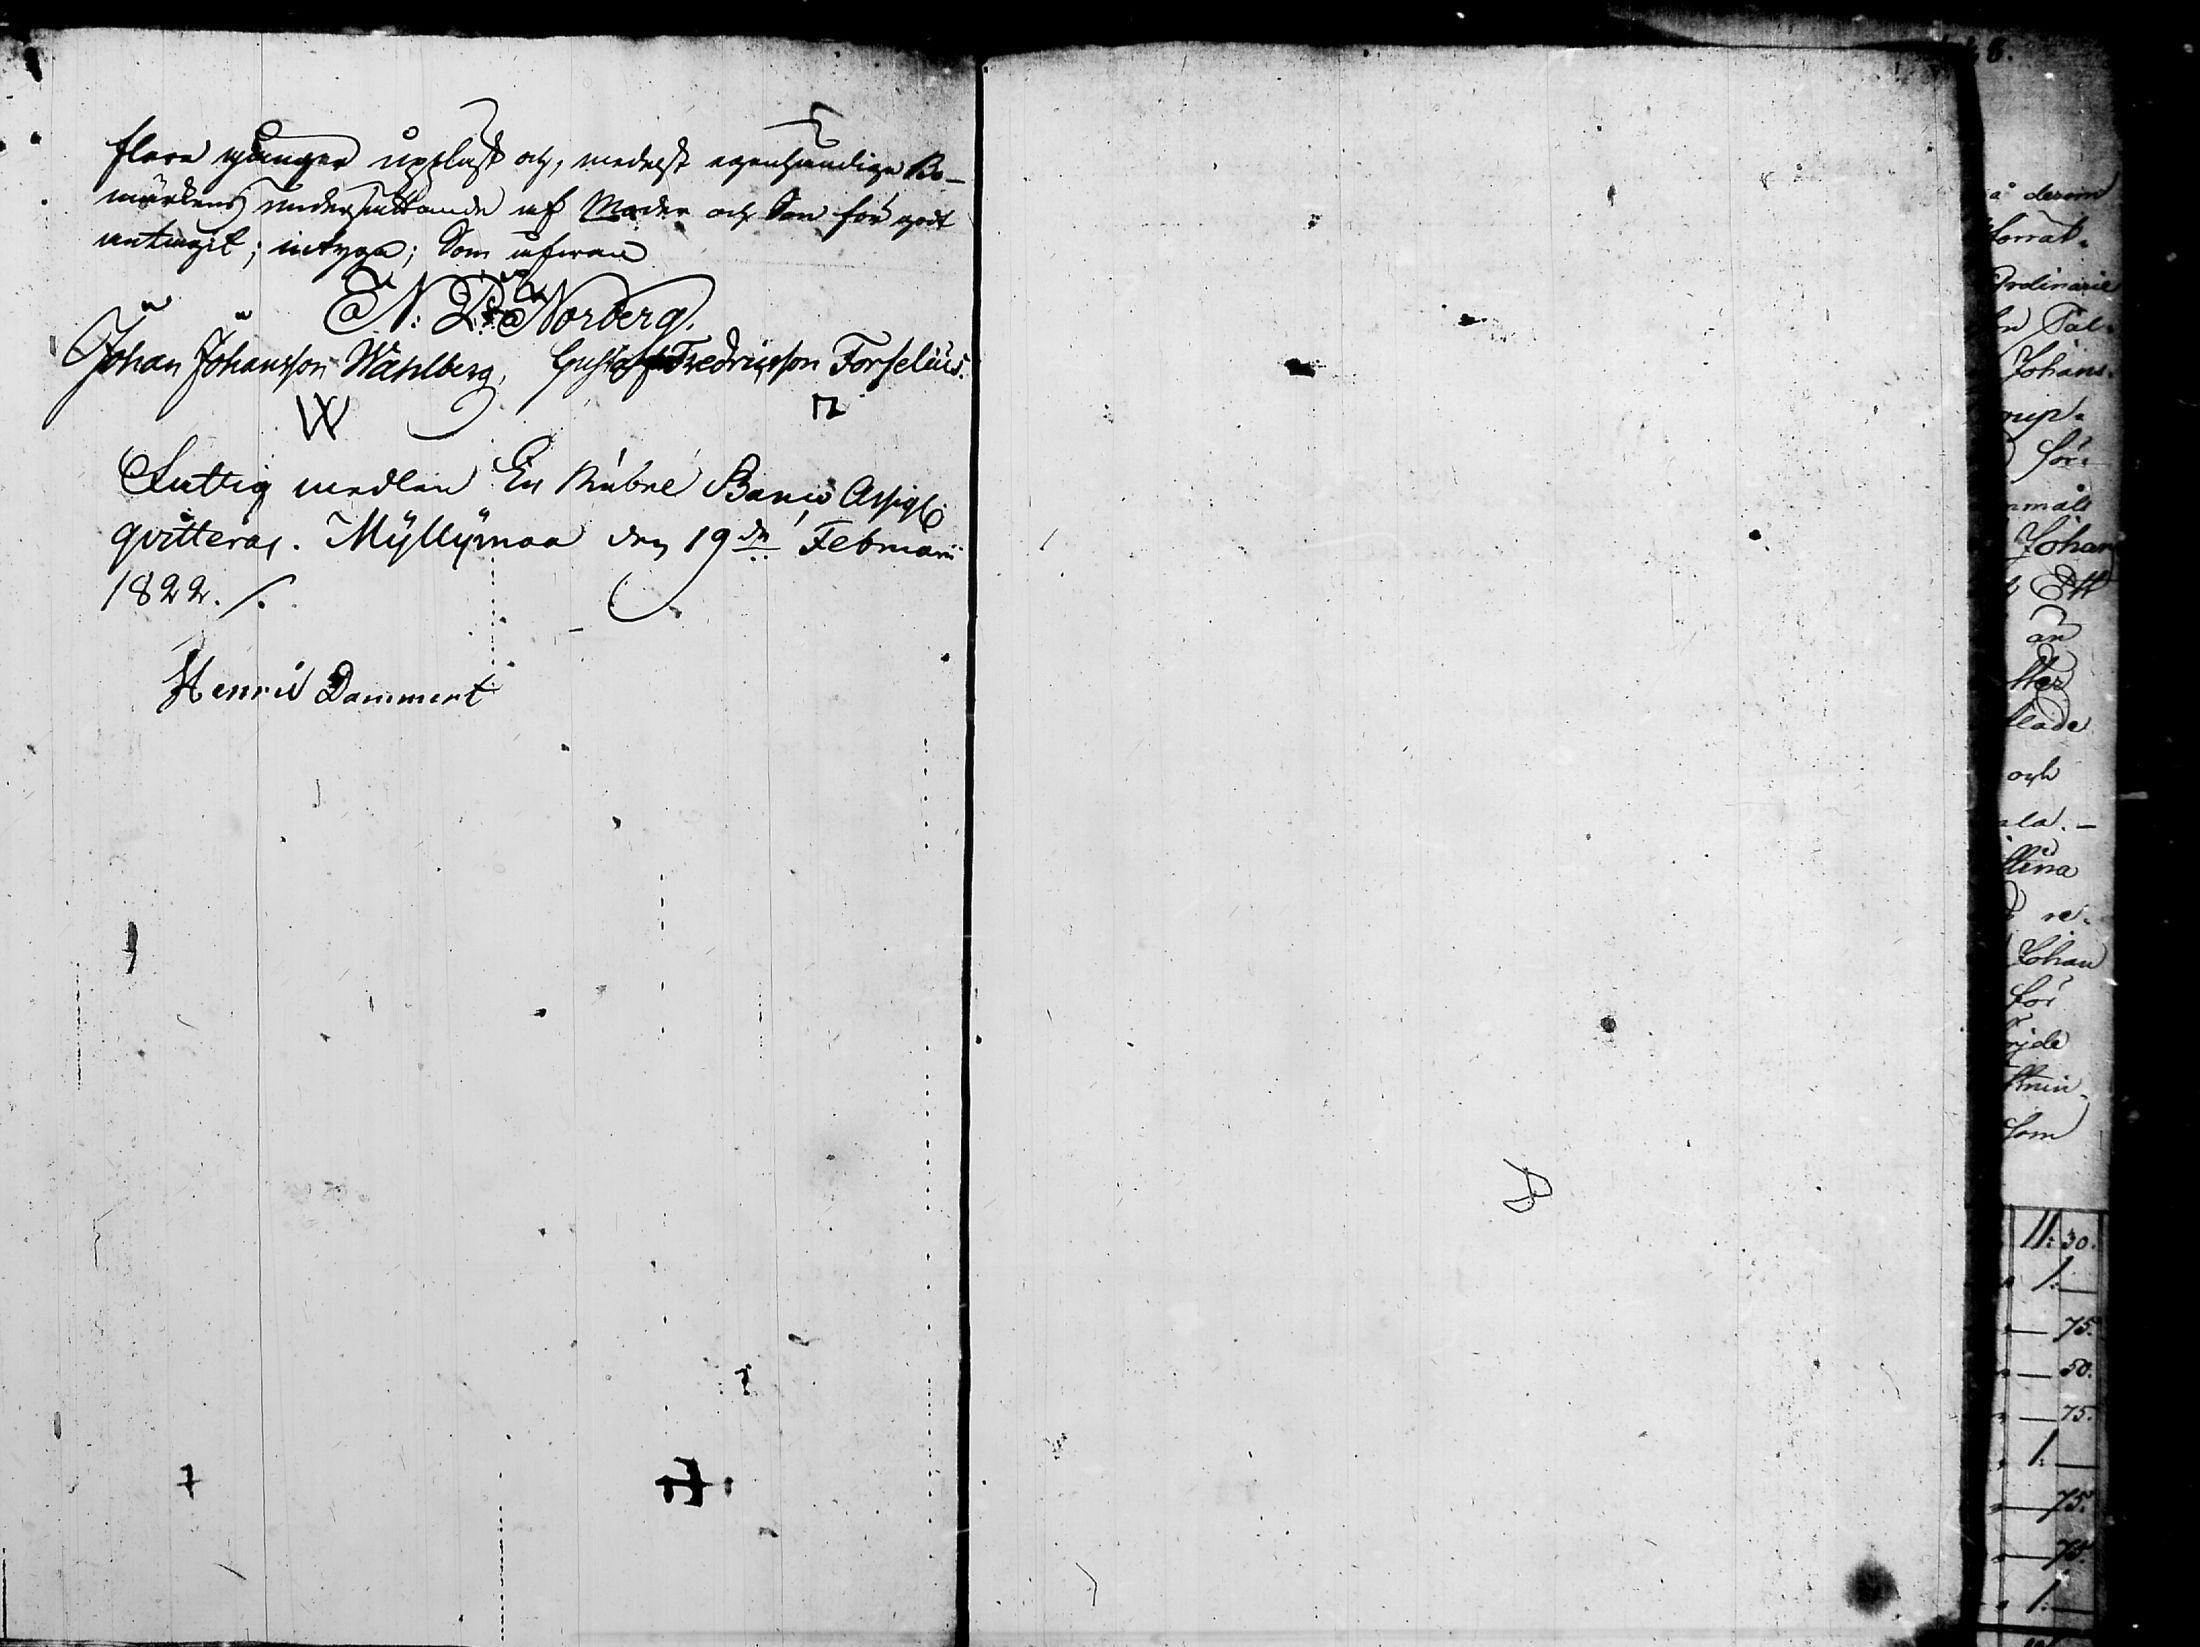 flera gånger uppläst och, medelst egenhändiga Bo-
märkens undersättande af Moder och Son för godt
antagit; intyga; Som ofvan
N: Norberg.
Johan Johansson Wahlberg, Gustaf Fredricsson Forselius.
W
Fattig medlen En Rubel Banco Assigt
qvitteras. Myllymaa den 19de Februarii
1822. /.
Henric Dammert
8.
å derom
Ordinarie
Johans-
för-
Johan
Ett
än
och
re-
Johan
för
som
11: 30.
1: —
— 75.
— 50.
— 75.
1: —
— 75.
— 75.
1: —